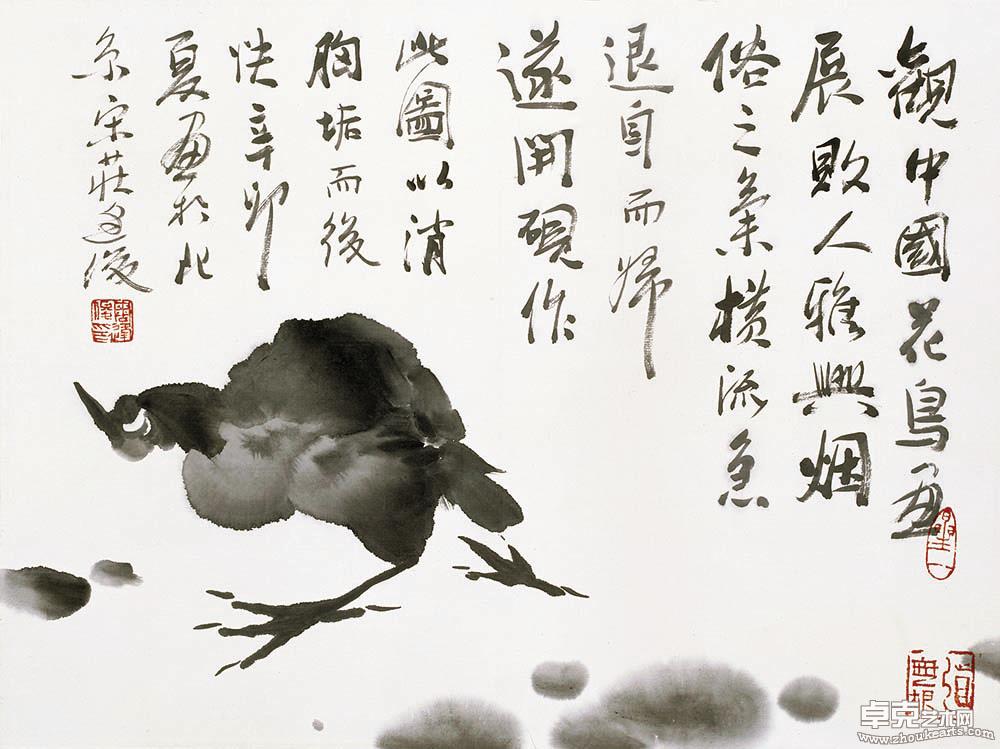 觀中國花鳥画
展敗人雅興烟
俗之氣横流急
退自而歸
遂開硯作
此圖以消
胸垢而後
快辛卯
夏画於北
京宋莊道後
卓克艺术网
www.zhoukearts.com